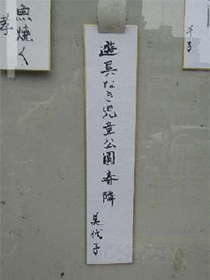 遊具なき児童公園春障
美代子
魚焼く